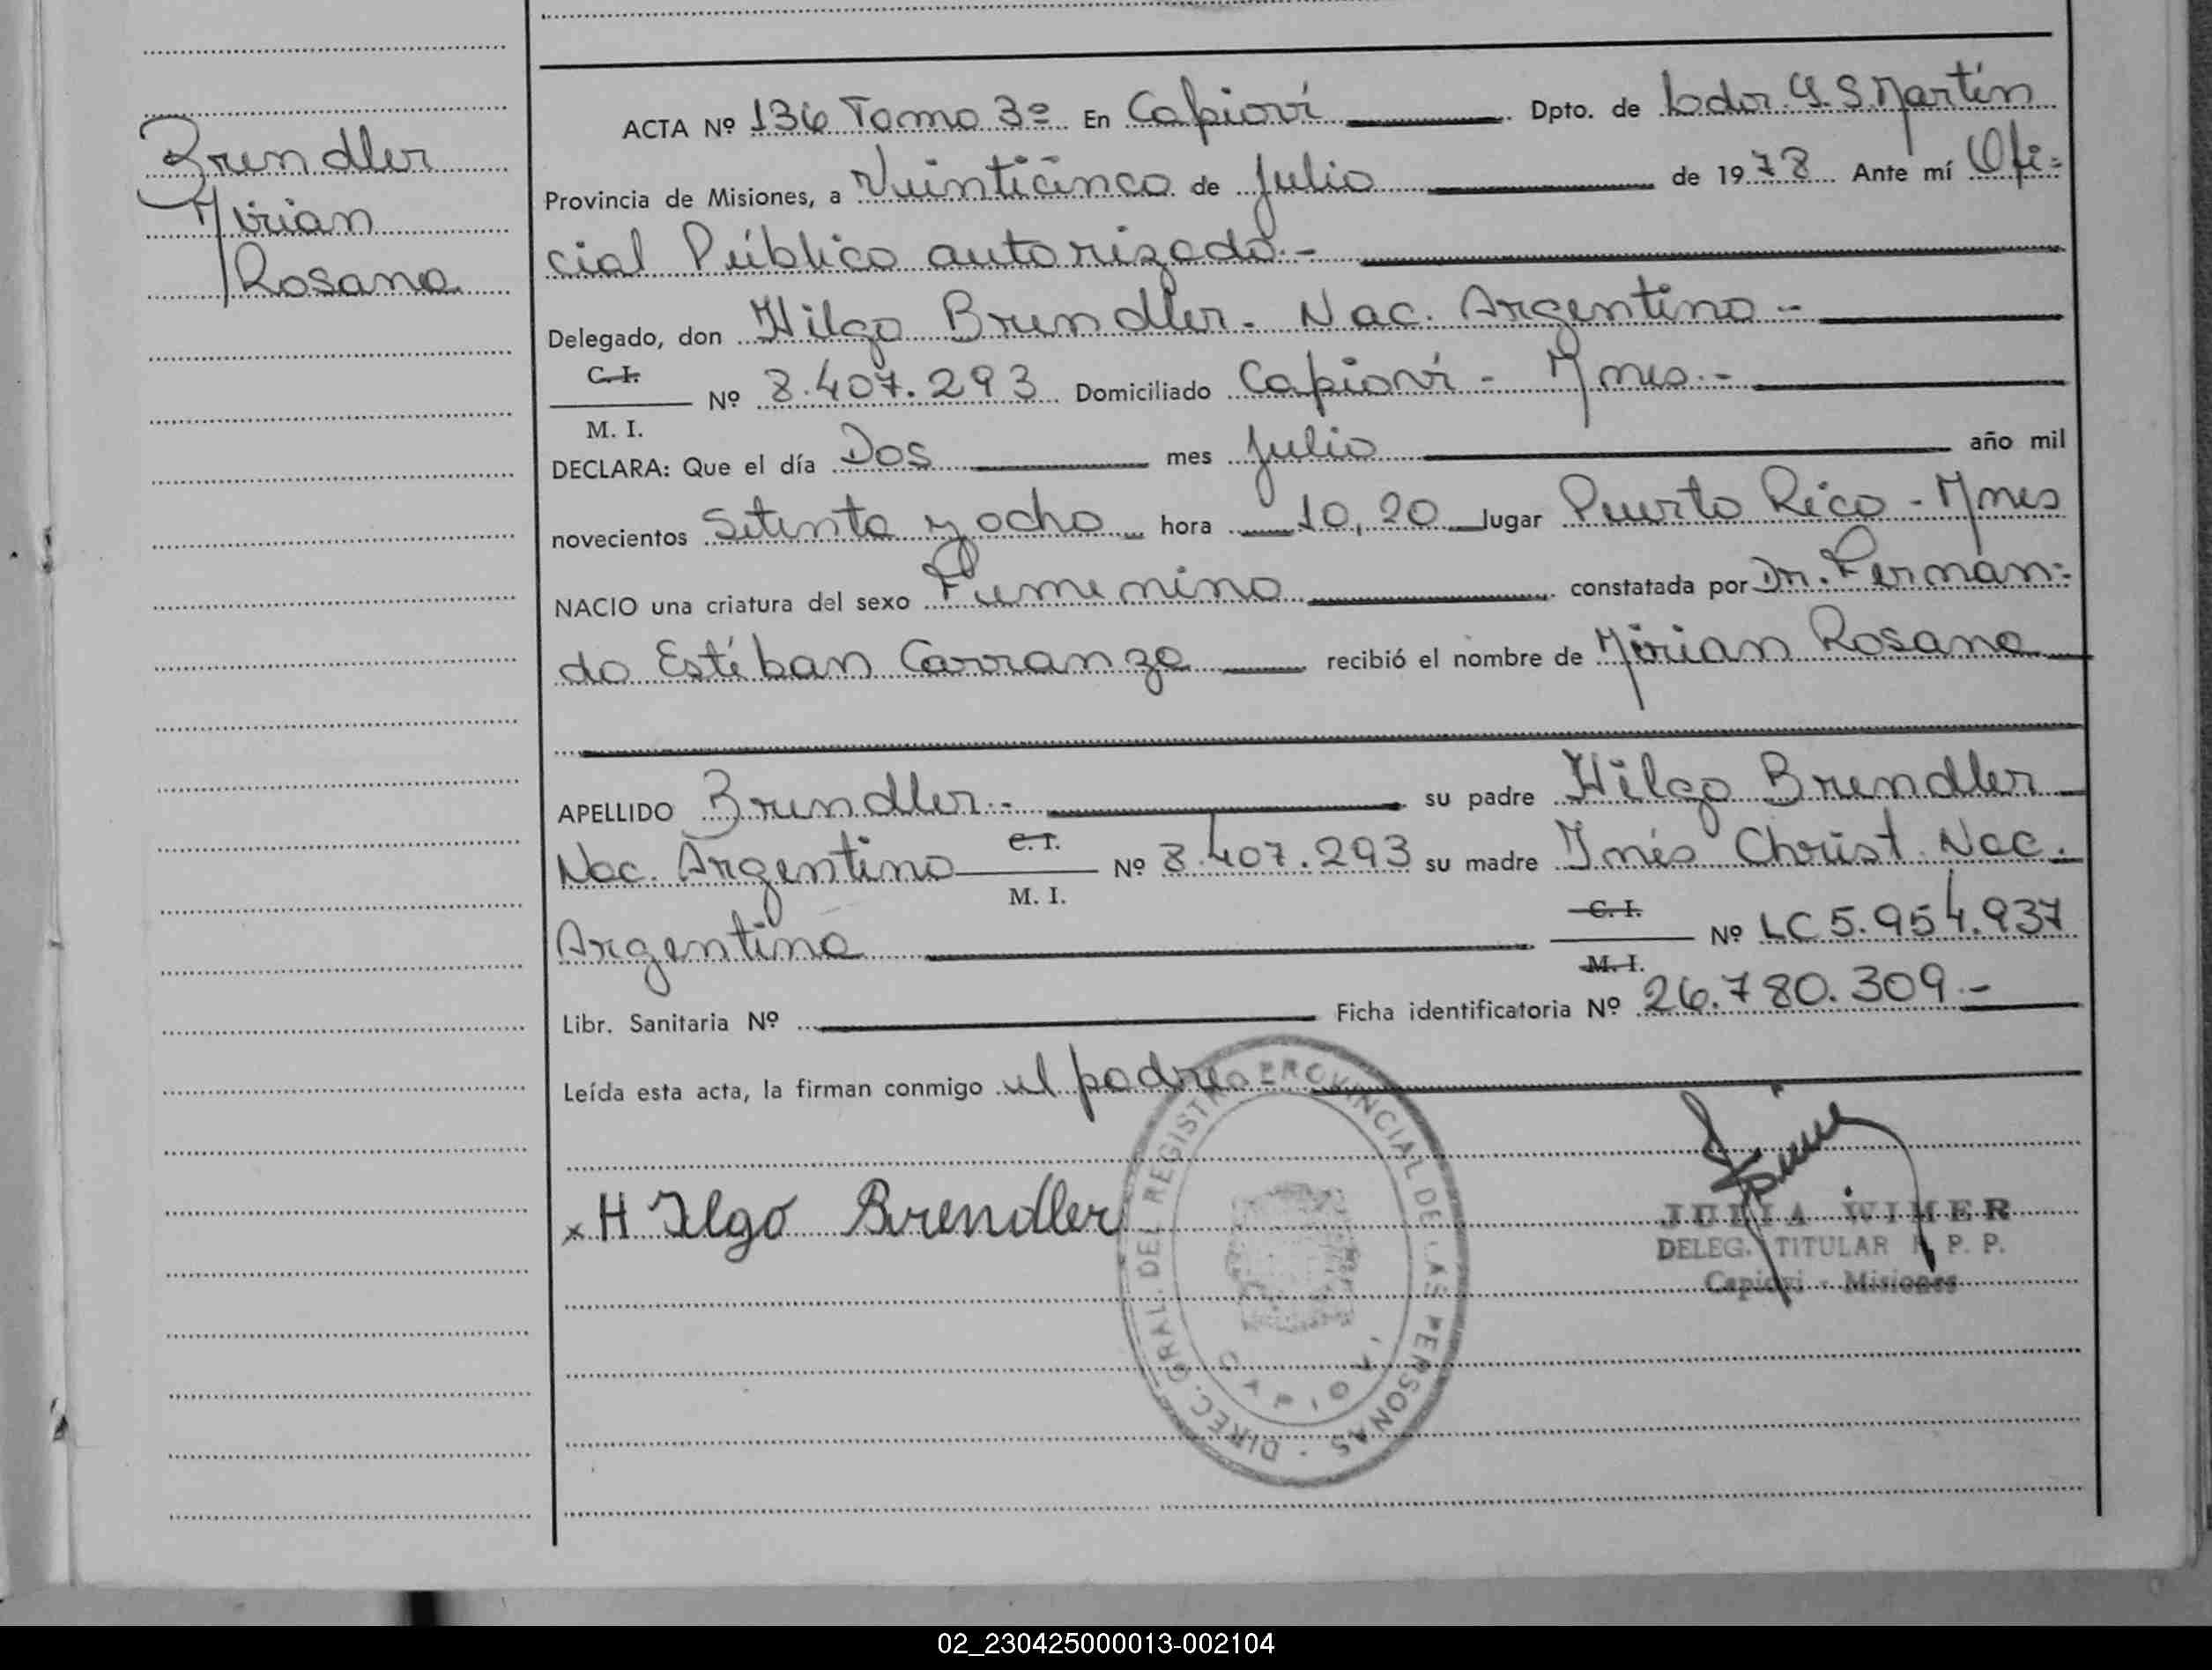 Brendler
Mirian
Rosana
ACTA Nº 136 Tomo 3º En Capioví Dpto. de Lbdor. G. S. Martín
Provincia de Misiones, a Veinticinco de Julio de 1978 Ante mí Ofi=
cial Público autorizado.-
Delegado, don Hilgo Brendler. Nac. Argentino -
C. I.
Nº 8.407.293 Domiciliado Capioví - Mnes.-
M. I.
DECLARA: Que el día Dos mes Julio año mil
novecientos Setenta y ocho hora 10,20 lugar Puerto Rico - Mnes
NACIO una criatura del sexo Femenino constatada por Dr. Fernan=
do Estéban Carranza recibió el nombre de Mirian Rosana
APELLIDO Brendler.- su padre Hilgo Brendler
Nac. Argentino C. I. Nº 8.407.293 su madre Inés Christ Nac.
M. I.
Argentina C. I. Nº LC 5.954.937
M. I.
Libr. Sanitaria Nº Ficha identificatoria Nº 26.780.309.-
Leída esta acta, la firman conmigo el padre
x H Ilgo Brendler
DIREC. GRAL. DEL REGISTRO PROVINCIAL DE LAS PERSONAS -
CAPIOVI
JULIA WIMER
DELEG. TITULAR R. P. P.
Capiovi - Misiones
02_230425000013-002104